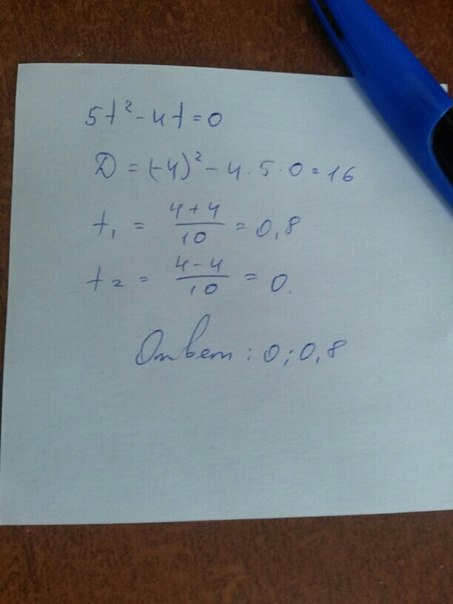 5t² - 4t = 0
D = (-4)² - 4 · 5 · 0 = 16
t₁ = (4+4)/10 = 0,8
t₂ = (4-4)/10 = 0.
Ответ: 0; 0,8